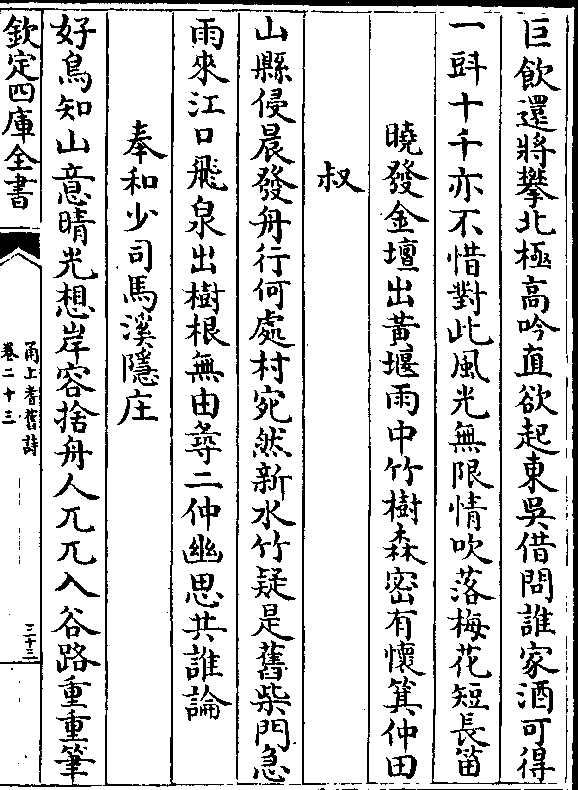 巨飲還將攀北極高吟直欲起東吳借問誰家酒可得
一㪷十千亦不惜對此風光無限情吹落梅花短長笛
曉發金壇出黃堰雨中竹樹森密有懷箕仲田
叔
山縣侵晨發舟行何處村宛然新水竹疑是舊柴門急
雨來江口飛泉出樹根無由尋二仲幽思共誰論
奉和少司馬溪隱庄
好鳥知山意晴光想岸容捨舟人兀兀入谷路重重筆
欽定四庫全書
甬上耆舊詩
卷二十三
三十三